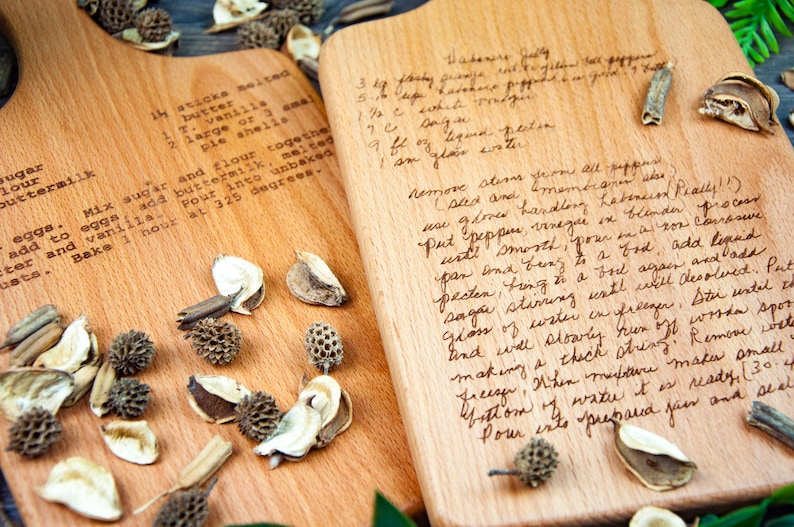 1½ sticks melted
butter
1 T. vanilla
2 large or 3 small
pie shells
sugar
flour
buttermilk
eggs. Mix sugar and flour together
add to eggs, add buttermilk, melted
and vanilla. Pour into unbaked
Bake 1 hour at 325 degrees.
Habanero Jelly
3 lg fleshy orange, red or yellow bell peppers
5-10 habanero peppers
1½ C white vinegar
7 C sugar
9 fl oz liquid pectin
1 sm glass water
remove stems from all peppers
(seed and membranes also)
use gloves handling habaneros (Really!!)
Put peppers, vinegar in blender process
until smooth, pour in a non corrosive
pan and bring to a boil, add liquid
pectin, bring to a boil again and add
sugar stirring until well dissolved. Put
glass of water in freezer. Stir until
and will slowly run off wooden spoon
making a thick string. Remove water
freezer. When mixture makes small
bottom of water it is ready. (30
Pour into prepared jars and seal